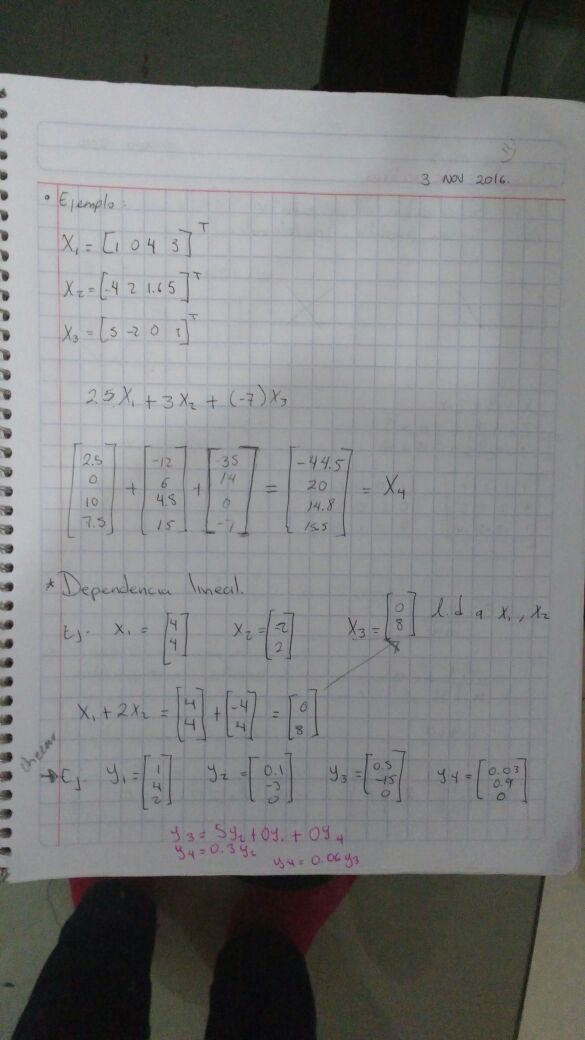 3 NOV 2016.
• Ejemplo:
X₁ = [1 0 4 3]ᵀ
X₂ = [-4 2 1.6 5]ᵀ
X₃ = [5 -2 0 1]ᵀ
2.5 X₁ + 3X₂ + (-7) X₃
[2.5 0 10 7.5] + [-12 6 4.8 15] + [-35 14 0 -7] = [-44.5 20 14.8 15.5] = X₄
* Dependencia lineal.
Ej. X₁ = [4 4] X₂ = [-2 2] X₃ = [0 8] l.d a X₁, X₂
X₁ + 2X₂ = [4 4] + [-4 4] = [0 8]
checar
→ Ej. y₁ = [1 4 2] y₂ = [0.1 -3 0] y₃ = [0.5 -15 0] y₄ = [0.03 0.9 0]
y₃ = 5y₂ + 0y₁ + 0y₄
y₄ = 0.3y₂
y₄ = 0.06y₃